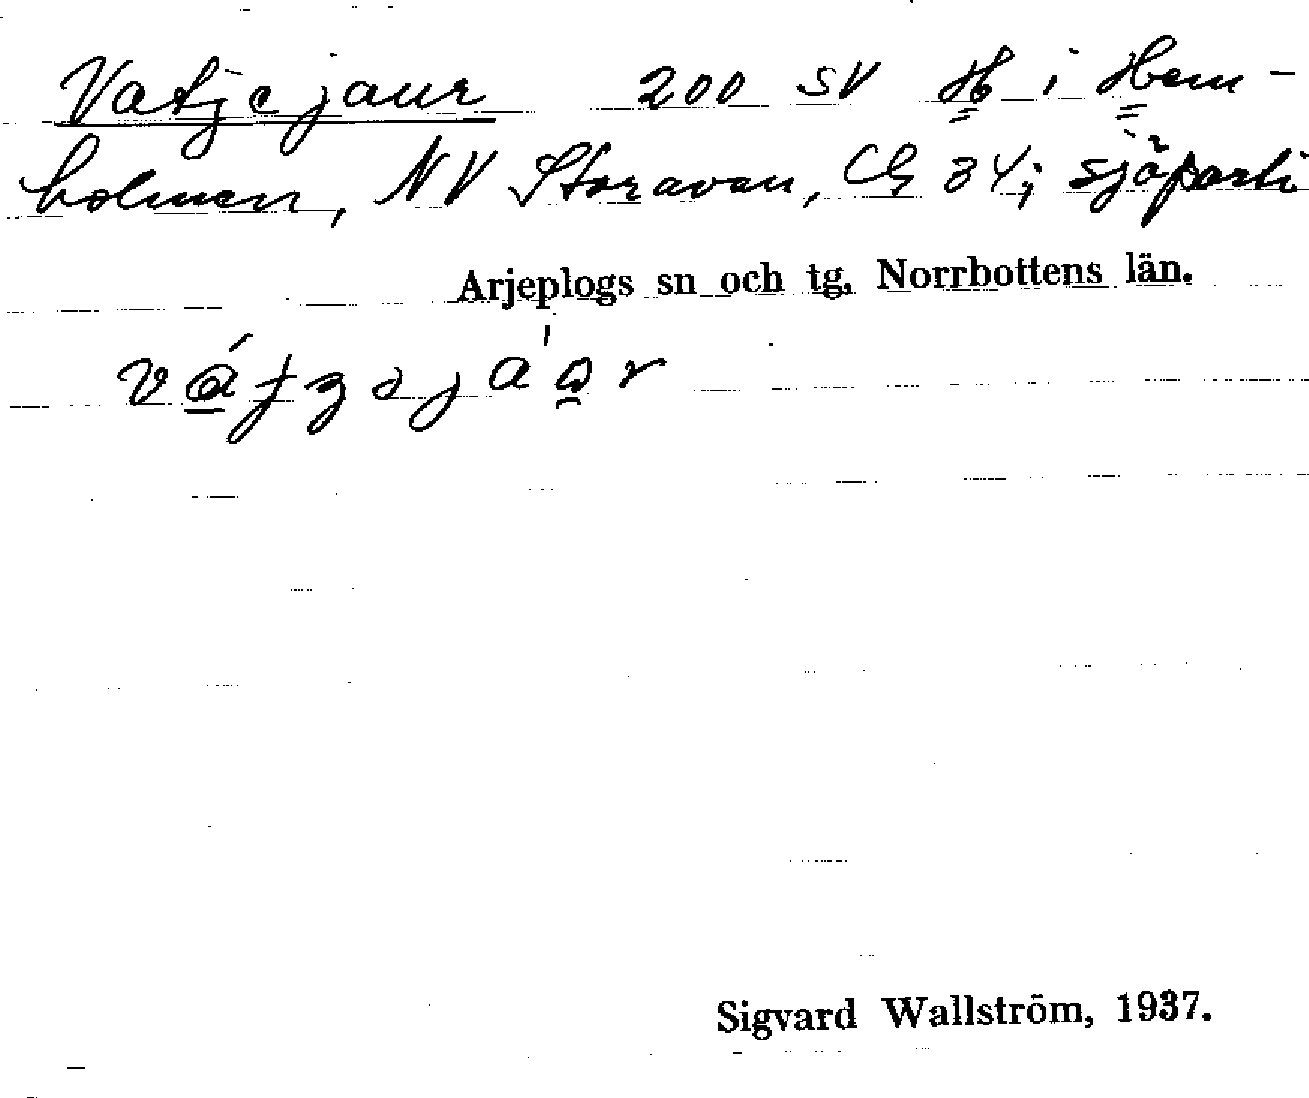 Vatjejaur 200 SV H i Hem-
holmen, NV Storavan, CG 34; sjöparti
Arjeplogs sn och tg. Norrbottens län.
Sigvard Wallström, 1937.